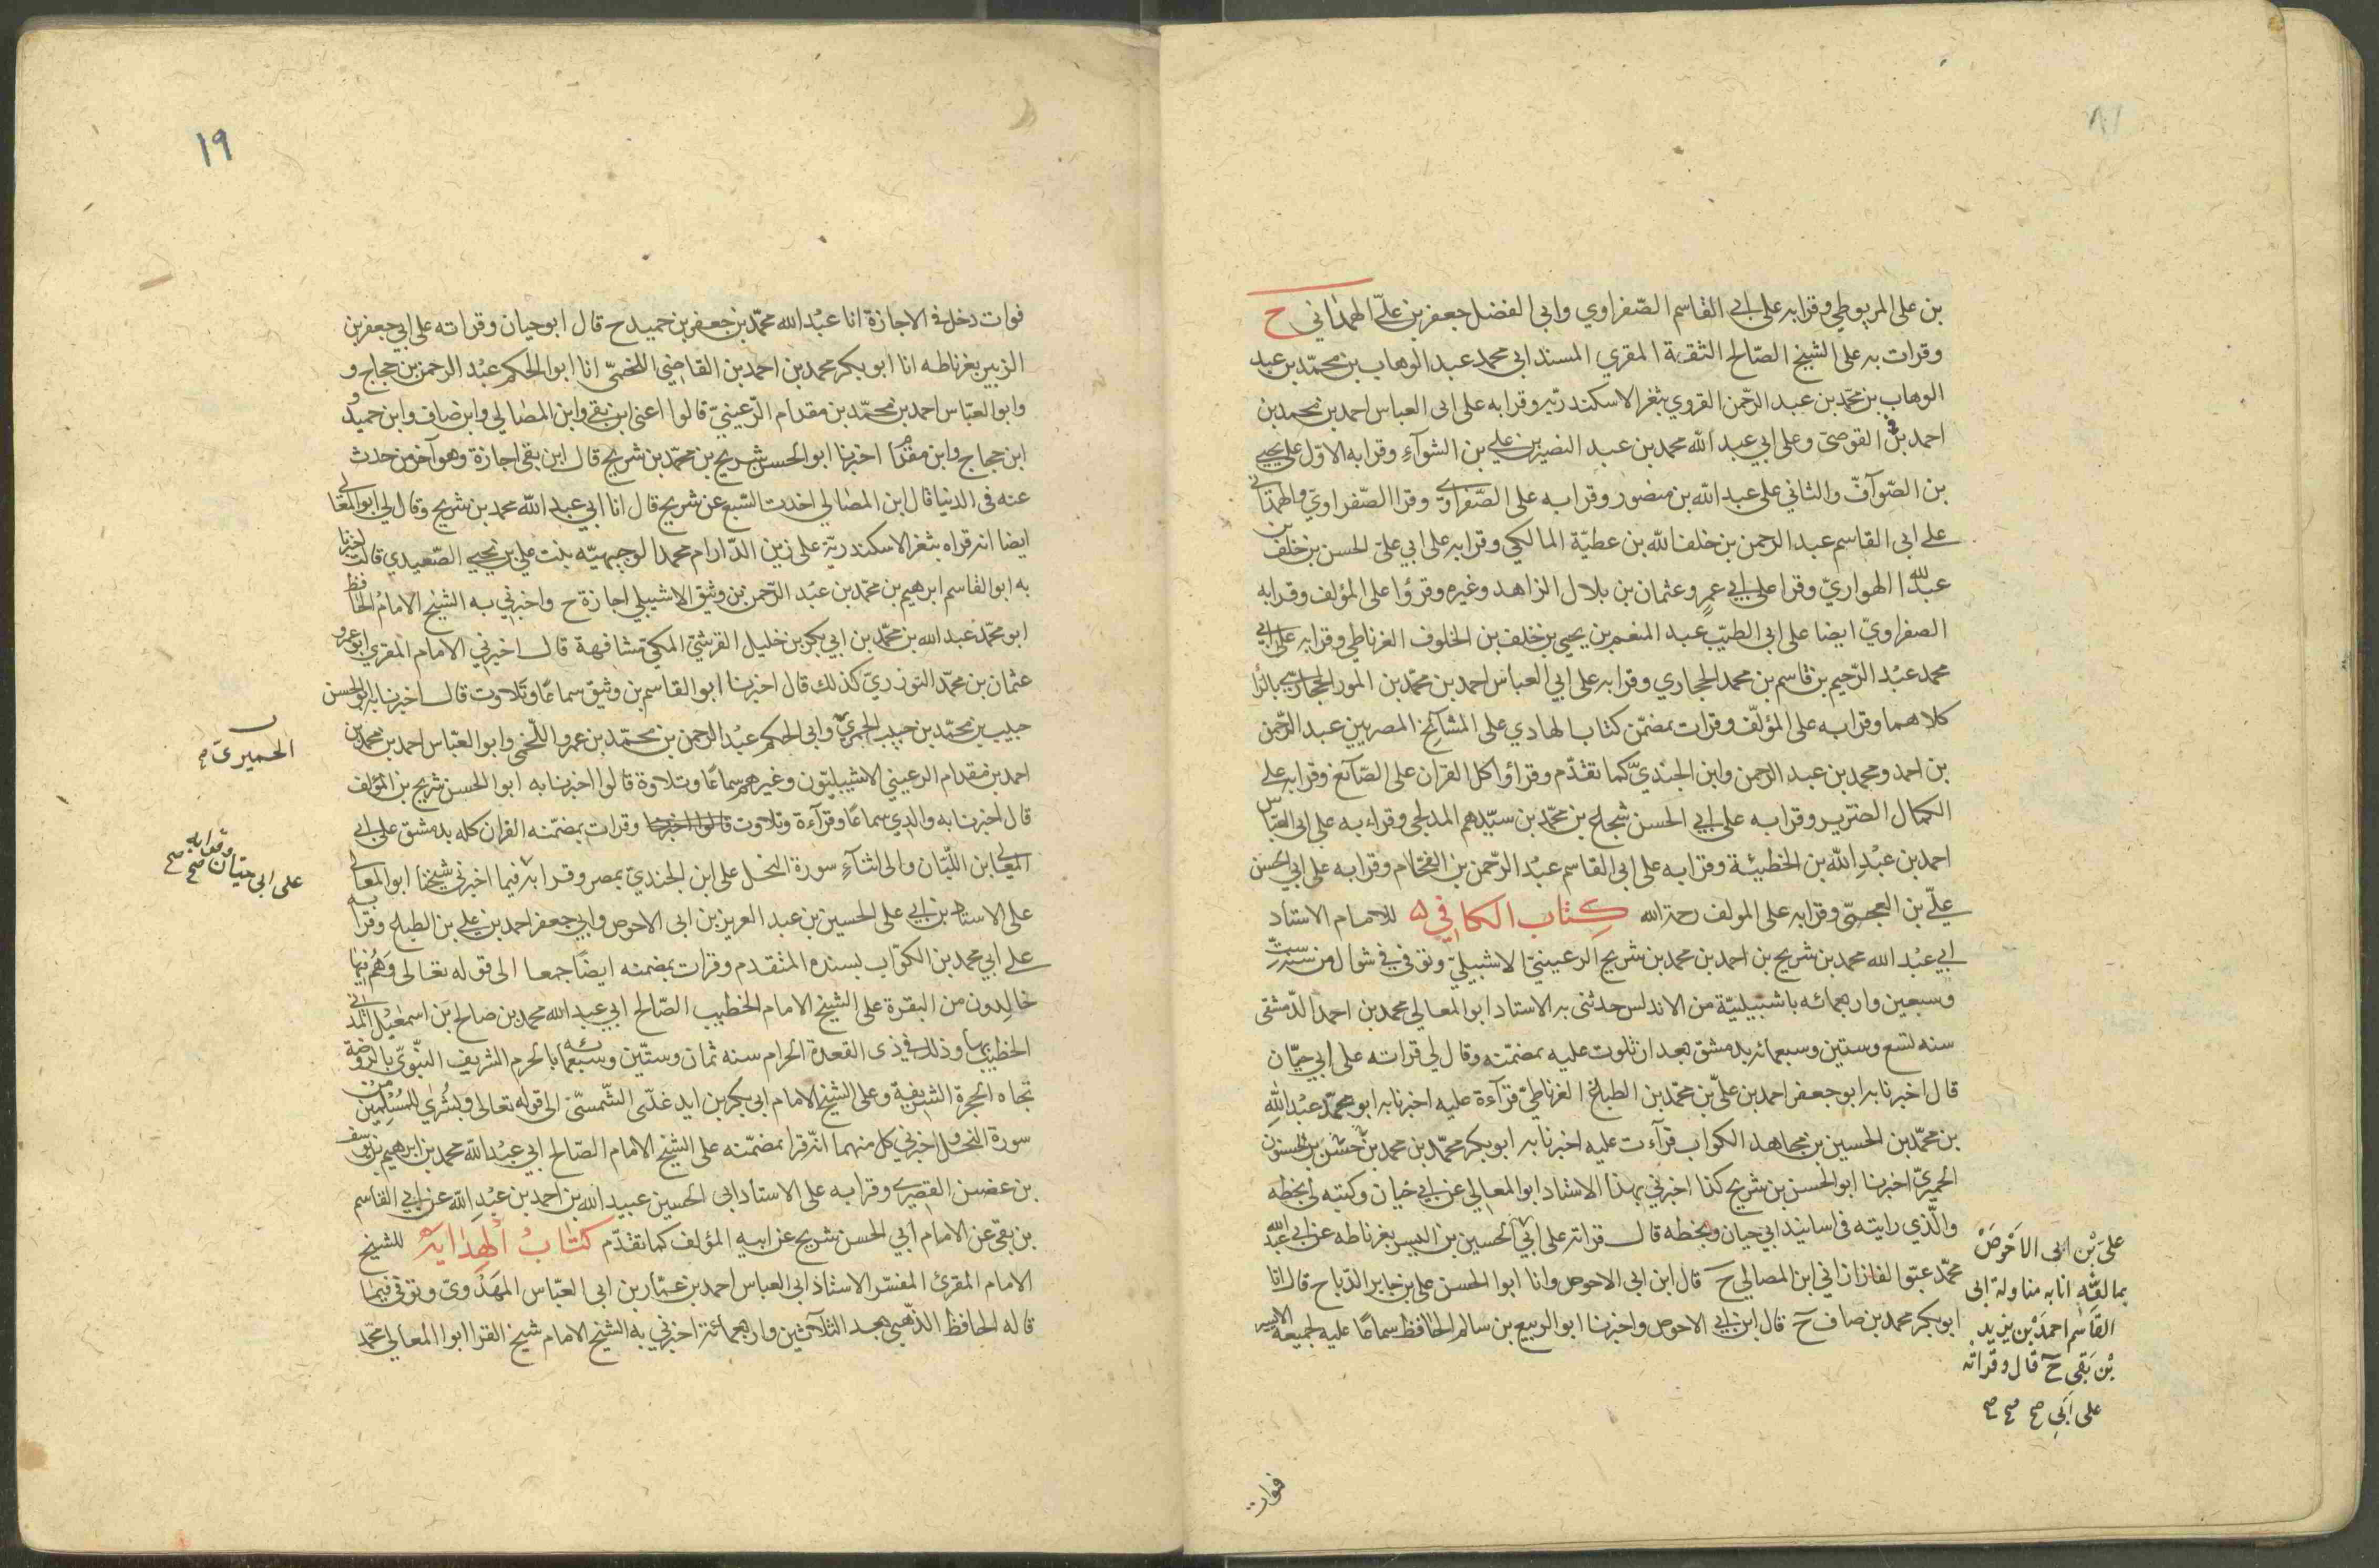 بن على المريوطي وقرا به على ابي القاسم الصفراوي وابى الفضل جعفر بن علي الهمداني ح
وقرات به على الشيخ الصالح الثقة المقري المسند ابى محمد عبد الوهاب بن محمد بن عبد
الوهاب بن محمد بن عبد الرحمن القروي بثغر الاسكندرية وقرا به على ابى العباس احمد بن محمد بن
احمد بن القوصى وعلى ابي عبد الله محمد بن عبد النصير بن علي بن الشوآء وقرا به الاول على يحيى
بن الصوآف والثاني على عبد الله بن منصور وقرا به على الصفراوي وقرا الصفراوي والهمداني
على ابى القاسم عبد الرحمن بن خلف الله بن عطية المالكي وقرا به على ابي على الحسن بن خلف بن
عبد الله الهواري وقرا على ابي عمرو عثمان بن بلال الزاهد وغيره وقرؤا على المؤلف وقرا به
الصفراوي ايضا على ابى الطيب عبد المنعم بن يحيى بن خلف بن الخلوف الغرناطي وقرا به على ابي
محمد عبد الرحيم بن قاسم بن محمد الحجاري وقرا به على ابي العباس احمد بن محمد بن المور الحجاري بالرا
كلاهما وقرا به على المؤلف وقرات بمضمن كتاب الهادي على المشائخ المصريين عبد الرحمن
بن احمد ومحمد بن عبد الرحمن وابن الجندي كما تقدم وقرأوا كل القران على الصآئغ وقرا به على
الكمال الضرير وقرا به على ابي الحسن شجاع بن محمد بن سيدهم المدلجى وقراء به على ابى العباس
احمد بن عبد الله بن الحطيئة وقرا به على ابى القاسم عبد الرحمن بن الفحام وقرا به على ابي الحسن
علي بن العجمى وقرا به على المولف رحمة الله كتاب الكافي له للامام الاستاد
ابي عبد الله محمد بن شريح بن احمد بن محمد بن شريح الرعيني الاشبيلي وتوفي في شوال من سنة ست
وسبعين واربعمائه باشبيلية من الاندلس حدثنى به الاستاد ابو المعالي محمد بن احمد الدمشقى
سنه تسع وستين وسبعمائه بدمشق بعد ان تلوت عليه بمضمنه وقال لي قراته على ابي حيان
قال اخبرنا به ابو جعفر احمد بن علي بن محمد بن الطباع الغرناطي قرآءة عليه اخبرنا به ابو محمد عبد الله
بن محمد بن الحسين بن مجاهد الكواب قرآءت عليه اخبرنا به ابو بكر محمد بن محمد بن بن الحسنون
الحميري اخبرنا ابو الحسن بن شريح كذا اخبرني بهذا الاستاد ابو المعالي عن ابي حيان وكتبه لى بخطه
والذي رايته في اسانيد ابي حيان وبخطه قال قراته على ابي الحسين بن اليسر بغرناطه عن ابي عبد الله
محمد عتو الفازازاني ابن المصالي ح قال ابن ابى الاحوص وانا ابو الحسن على بن جابر الدباج قال انا
ابو بكر محمد بن صاف ح قال ابن ابي الاحوص واخبرنا ابو الربيع بن سالم الحافظ سماعا عليه لجميعه الايسير
على بن ابى الاحوص
بمالقه انا به مناولة ابى
القاسم احمد بن يزيد
بن بقى ح قال وقراته
على ابي صح صح صح
فوات
١٩
فوات دخل في الاجازة انا عبد الله محمد بن جعفر بن حميد ح قال ابو حيان وقراته على ابي جعفر بن
الزبير بغرناطه انا ابو بكر محمد بن احمد بن القاضي اللخمى انا ابو الحكم عبد الرحمن بن حجاج و
وابو العباس احمد بن محمد بن مقدام الرعيني قالوا اعنى ابن بقى وابن المصالي وابن صاف وابن حميد و
ابن حجاج وابن مقدام اخبرنا ابو الحسن شريح بن محمد بن شريح قال ابن بقى اجازة وهو آخر من حدث
عنه فى الدنيا قال ابن المصالي اخذت السبع عن شريح قال انا ابي عبد الله محمد بن شريح وقال لي ابو المعالى
ايضا انه قراه بثغر الاسكندرية على زين الدار ام محمد الوجيهيه بنت علي بن يحيى الصعيدي قالت اخبرنا
به ابو القاسم ابرهيم بن محمد بن عبد الرحمن بن وثيق الاشبيلي اجازة ح واخبرني به الشيخ الامام الحافظ
ابو محمد عبد الله بن محمد بن ابي بكر بن خليل القرشي المكي مشافهة قال اخبرني الامام المقري ابو عمرو
عثمان بن محمد التوزري كذلك قال اخبرنا ابو القاسم بن وثيق سماعا وتلاوت قال اخبرنا به ابو الحسن
حبيب بن محمد بن حبيب الحميري وابى الحكم عبد الرحمن بن محمد بن عمرو اللخمى وابو العباس احمد بن محمد بن
احمد بن مقدام الرعيني الاشبيليون وغيرهم سماعا وتلاوة قالوا اخبرنا به ابو الحسن شريح بن المؤلف
قال اخبرنا به والدي سماعا وقرآءة وتلاوت قالوا اخبرنا وقرات بمضمنه القران كله بدمشق على ابي
المعالى ابن اللبان والى اثنآء سورة النحل على ابن الجندي بمصر وقرا به فيما اخبرني شيخنا ابو المعالى
على الاستاد بن ابي على الحسين بن عبد العزيز بن ابى الاحوص وابي جعفر احمد بن على بن الطباع وقرأ به
على ابي محمد بن الكواب بسنده المتقدم وقرات بمضمنه ايضا جمعا الى قوله تعالى وهم فيها
خالدون من البقرة على الشيخ الامام الخطيب الصالح ابي عبد الله محمد بن صالح بن اسمعيل المدنى
الخطيب بها وذلك في ذى القعدة الحرام سنه ثمان وستين وسبعمائه بالحرم الشريف النبوي بالروضة
تجاه الحجرة الشريفة وعلى الشيخ الامام ابى بكر بن ايدغدى الشمسى الى قوله تعالى وبشرى للمسلمين من
سورة النحل واخبرني كل منهما انه قرا بمضمنه على الشيخ الامام الصالح ابي عبد الله محمد بن ابرهيم بن يوسف
بن غصن القصري وقرا به على الاستاد ابى الحسين عبيد الله بن احمد بن عبد الله عن ابي القاسم
بن بقى عن الامام ابي الحسن شريح عن ابيه المؤلف كما تقدم كتاب الهداية للشيخ
الامام المقرئ المفسر الاستاذ ابى العباس احمد بن عمار بن ابى العباس المهدوي وتوفي فيما
قاله الحافظ الذهبي بعد الثلاثين واربعمائة اخبرني به الشيخ الامام شيخ القرا ابو المعالي محمد
الحميرى صح
وقرا به صح
على ابى حيان صح